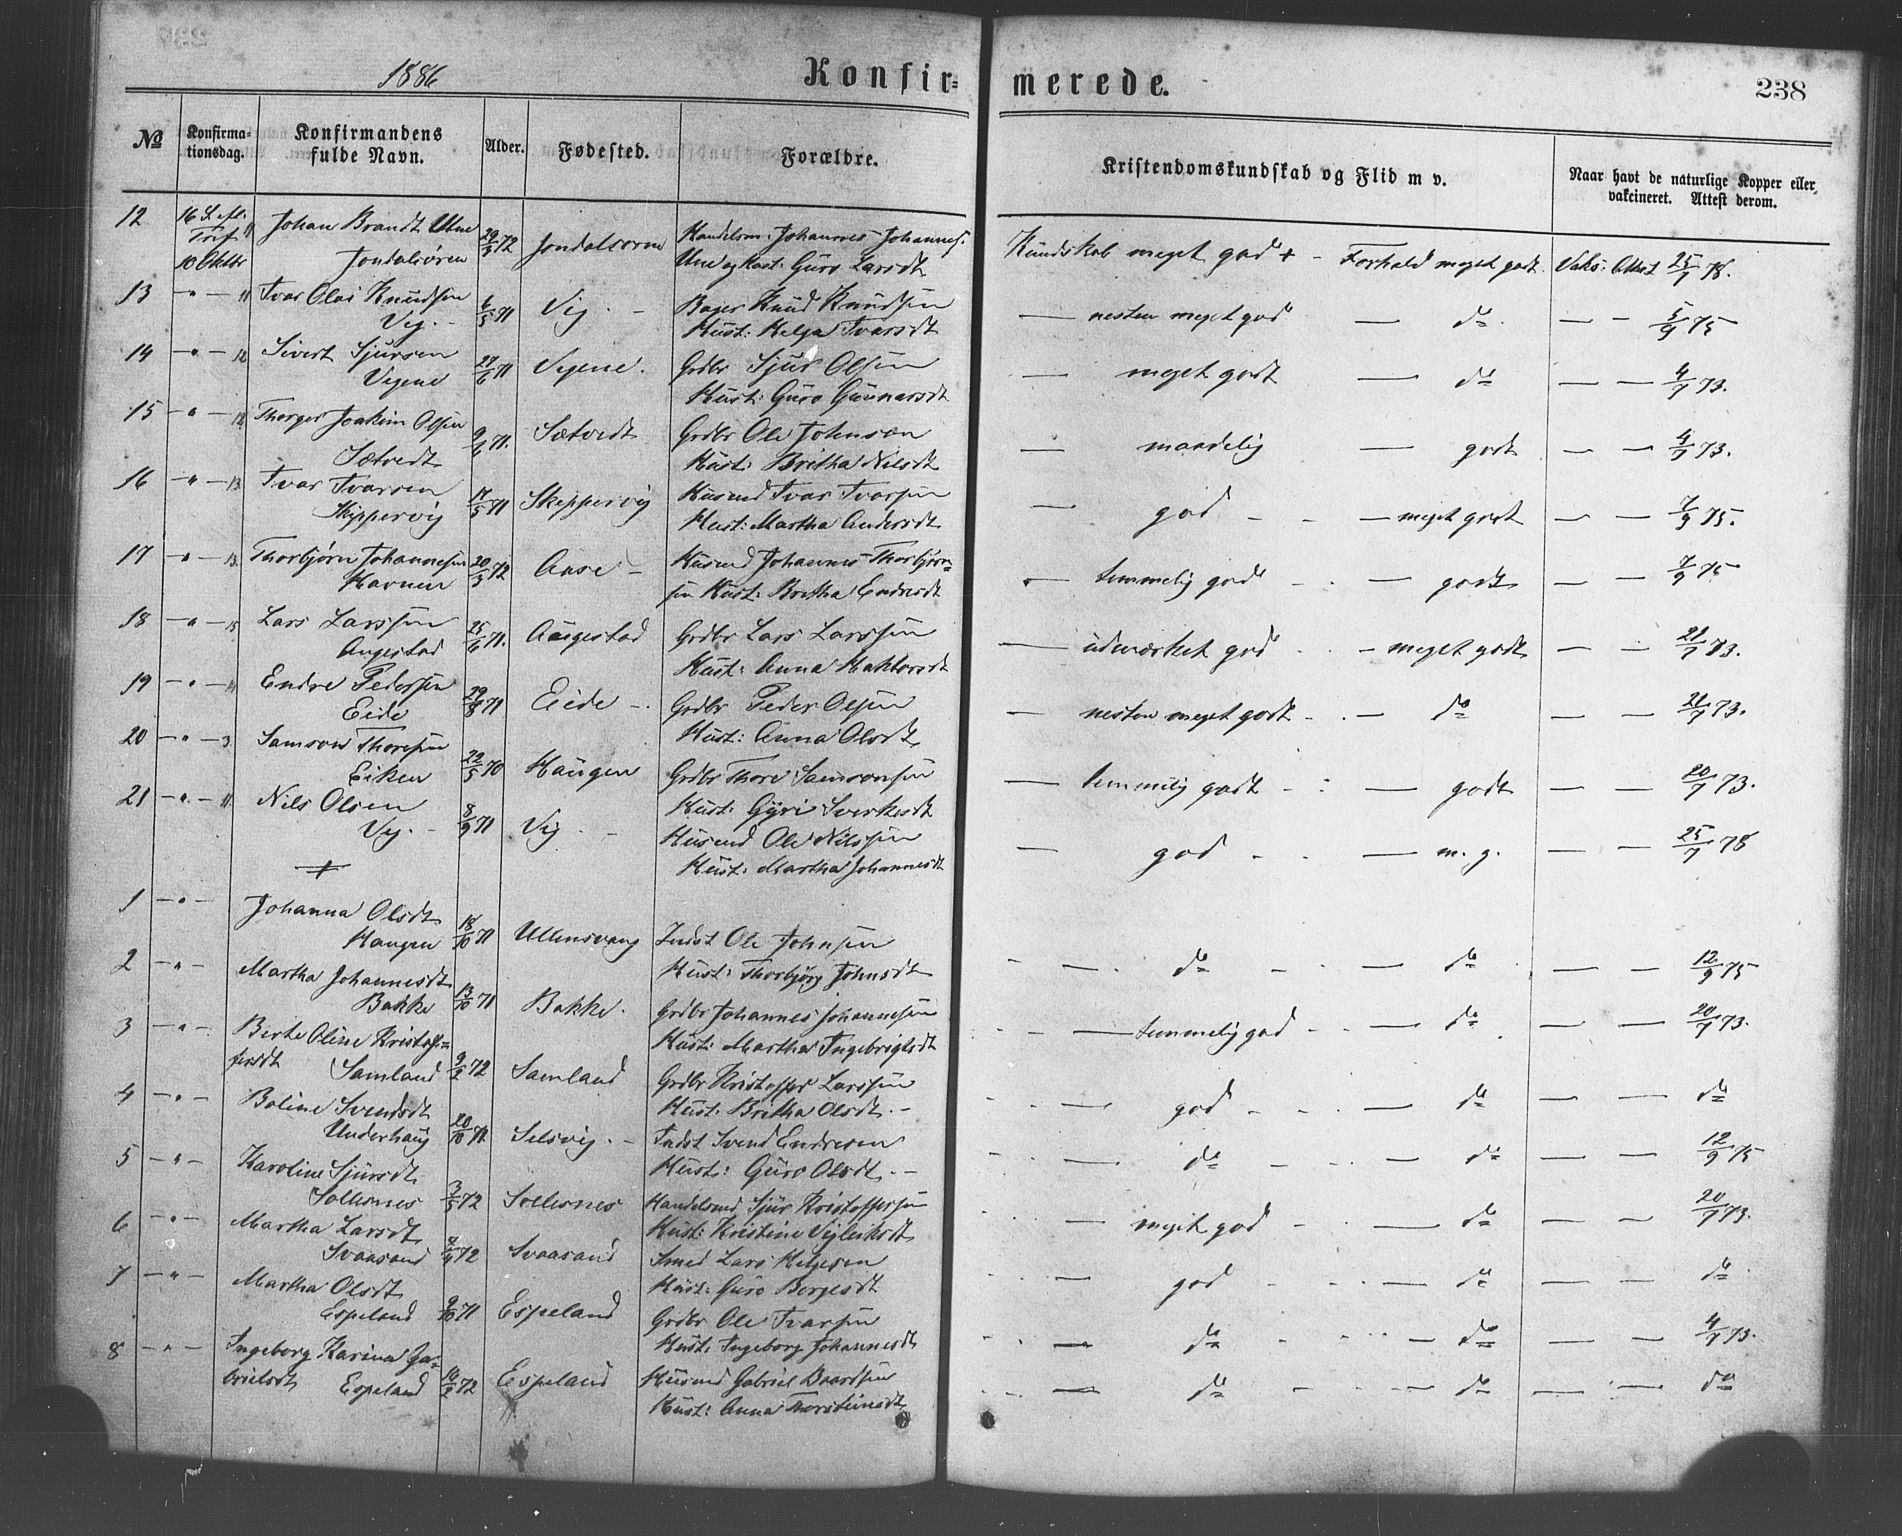 1886
Konfir-
merede.
238
№
Konfirma-
tionsdag.
Konfirmandens
fulde Navn.
Alder.
Fødested.
Forældre.
Kristendomskundskab og Flid m v.
Naar havt de naturlige Kopper eller
vakcineret. Attest derom.
12 16 Johan Brandt Utne 29/3 72 Jondalsøren Handelsm: Johannes Johannes.
10 Oktbr Jondalsøren Utne og Hust: Guro Larsdt
Kundskab meget god + - Forhold meget godt Vaks: Attest 25/7 78.
13 - " - 11 Ivar Olai Knudsen 6/5 71 Vig. - Bager Knud Knudsen
Vig. - Hust: Helga Ivarsdt
— nesten meget god — do. — - 5/9 75
14 - " - 12 Sivert Sjursen 27/6 71 Vigene. Grdbr Sjur Olsen
Vigene Hust: Guro Gunnarsdt
— meget godt — do — — 4/7 73.
15 - " - 12 Thorger Joakim Olsen 9/6 71. Sætvedt Grdbr Ole Johnsen
Sætvedt Hust: Britha Nilsdt
— maadelig — godt — — 4/7 73.
16 - " - 13 Ivar Ivarsen 17/5 71 Skippervig Husmd Ivar Ivarsen
Skippervig Hust: Martha Andersdt
— god - - — meget godt — — 7/9 75.
17 - " - 13 Thorbjørn Johannesen 20/3 72 Aase - Husmd Johannes Thorbjørn-
Havnen sen Hust: Britha Endresdt
temmelig god - - godt — — 7/9 75
18 - " - 15 Lars Larssen 25/6 71. Augestad Grdbr Lars Larssen
Augestad Hust: Anna Haktorsdt
— udmærket god - - meget godt — - 21/7 73.
19 - " - 11 Endre Pedersen 29/8 71 Eide - Grdbr Peder Olsen
Eide Hust: Anna Olsdt
— nesten meget godt - - — do — — 21/7 73.
20 - " - 3 Samson Thoresen 22/5 70 Haugen Grdbr Thore Samsonsen
Eiken Hust: Gyri Sverkesdt
— temmelig godt - : — godt — — 20/7 73.
21 - " - 11 Nils Olsen 8/9 71 Vig. - Husmd Ole Nilssen
Vig. - Hust: Martha Johannesdt
— god - - — m. g. — — 25/7 78
1 - " - Johanna Olsdt 18/10 71 Ullensvang Indst Ole Johnsen
Haugen Hust: Thorbjørg Johnsdt
- — do - — do — — 12/9 75
2 - " - Martha Johannesdt 13/10 71 Bakke. Grdbr Johannes Johannesen
Bakke Hust: Martha Ingebrigtsdt
- — temmelig god - - — do - — — 20/7 73.
3 - " - Berte Oline Kristof-
fersdt Samland 9/2 72 Samland Grdbr Kristoffer Larssen
Hust: Britha Olsdt. -
- — god - - - — do — — do
4 - " - Boline Svendsdt 20/10 71. Selsvig. - Indst Svend Endresen
Underhaug Hust: Guro Olsdt. -
- — do - - — do — — 12/9 75
5 - " - Karoline Sjursdt 3/5 72 Solesnes Handelsmd Sjur Kristoffersen
Solesnes Hust: Kristine Vigleiksdt
- — meget god - — do — — 20/7 73.
6 - " - Martha Larsdt 4/4 72 Svaasand Smed Lars Helgesen
Svaasand Hust: Guro Borgesdt
- — god - - — do — — do
7 - " - Martha Olsdt 9/10 71 Espeland Grdbr Ole Ivarsen
Espeland Hust: Ingeborg Johannesdt
- — do - - - do — — 4/7 73.
8 - " - Ingeborg Karina Ga-
brielsdt Espeland 14/2 72 Espeland Husmd Gabriel Baardsen
Hust: Anna Thorsteinsdt
- — do - - - do — — do